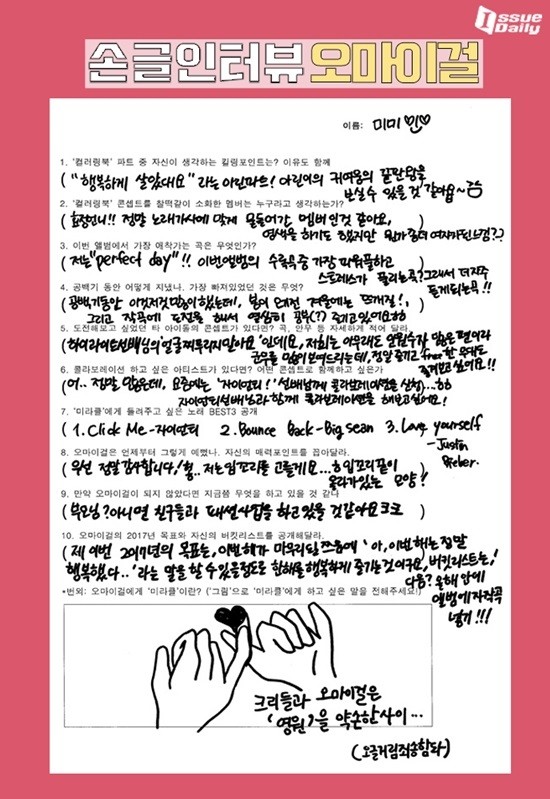 Issue Daily
손글인터뷰 오마이걸
이름: 미미
1. '컬러링북' 파트 중 자신이 생각하는 킬링포인트는? 이유도 함께
( "행복하게 살았대요" 라는 아린파트! 아린이의 귀여움의 끝판왕을
보실 수 있을 것 같아요~ )
2. '컬러링북' 콘셉트를 찰떡같이 소화한 멤버는 누구라고 생각하는가?
(효정언니!! 정말 노래가사에 맞게 물들어간 멤버인것 같아요,
염색을 하기도 했지만 뭔가 좀더 여자가된느낌??)
3. 이번 앨범에서 가장 애착가는 곡은 무엇인가?
(저는 "perfect day"!! 이번앨범의 수록곡중 가장 파워풀하고
스트레스가 풀리는곡? 그래서 더자주
듣게되는곡!! )
4. 공백기 동안 어떻게 지냈나. 가장 빠져있었던 것은 무엇?
(공백기동안 이것저것 많이했는데, 봄이 오기전 겨울에는 뜨개질!,
그리고 작곡에 도전을 해서 열심히 공부(?) 즐기고있어요ㅎㅎ
5. 도전해보고 싶었던 타 아이돌의 콘셉트가 있다면? 곡, 안무 등 자세하게 적어 달라.
(하이라이트선배님의 '얼굴찌푸리지말아요' 인데요, 저희는 아무래도 인원수가 많은 편이라
군무를 많이 보여드리는데, 정말 즐기고 free한 무대도
즐겨보고 싶어요! )
6. 콜라보레이션 하고 싶은 아티스트가 있다면? 어떤 콘셉트로 함께하고 싶은가
(어.. 정말 많은데, 요즘에는 '자이언티!' 선배님께 콜라보레이션을 신청...ㅎㅎ
자이언티선배님과 함께 콜라보레이션을 해보고싶어요! )
7. '미라클'에게 들려주고 싶은 노래 BEST3 공개
( 1. Click Me -자이언티 2. Bounce Back - Big sean 3. Love yourself
- Justin
Bieber. )
8. 오마이걸은 언제부터 그렇게 예뻤나. 자신의 매력포인트를 꼽아달라.
(우선 정말 감사합니다! 힝.. 저는 입꼬리를 고를게요... ㅎ 입꼬리끝이
올라가있는 모양? )
9. 만약 오마이걸이 되지 않았다면 지금쯤 무엇을 하고 있을 것 같나
(부모님? 아니면 친구들과 패션사업을 하고있을것같아요ㅋㅋ )
10. 오마이걸의 2017년 목표와 자신의 버킷리스트를 공개해달라.
( 제 이번 2017년의 목표는, 이번해가 마무리될 쯔음에 '아, 이번해는 정말
행복했다..' 라는 말을 할 수 있을정도로 한해를 행복하게 즐기는것이구요, 버킷리스트는,!
다음? 올해 안에
앨범에 자작곡
넣기 !!! )
*번외: 오마이걸에게 '미라클'이란? ('그림'으로 '미라클'에게 하고 싶은 말을 전해주세요!)
크리들과 오마이걸은
'영원'을 약속한사이...
(오글거림죄송함돠)